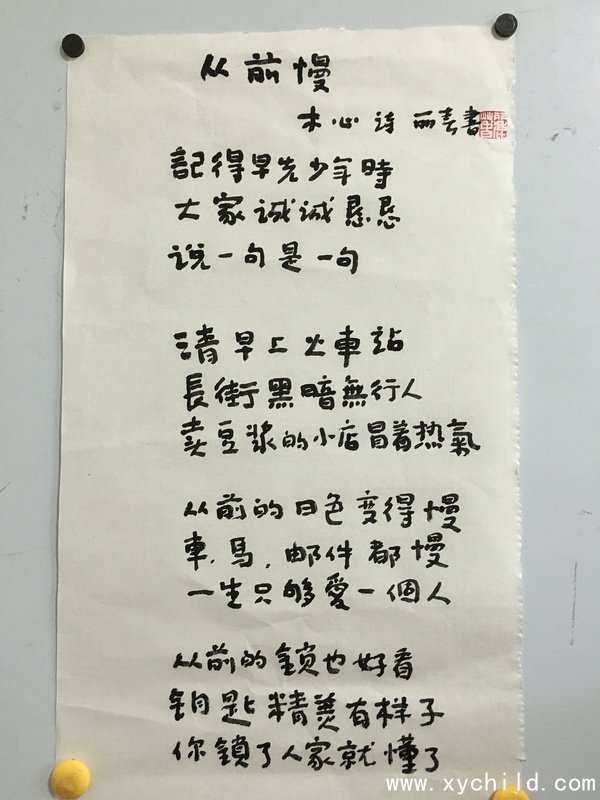 从前慢
木心诗 丽春書
記得早先少年時
大家诚诚恳恳
说一句是一句
清早上火車站
長街黑暗無行人
卖豆浆的小店冒着热氣
从前的日色变得慢
車,馬,邮件都慢
一生只够愛一個人
从前的鎖也好看
钥匙精美有样子
你鎖了人家就懂了
www.xychild.com